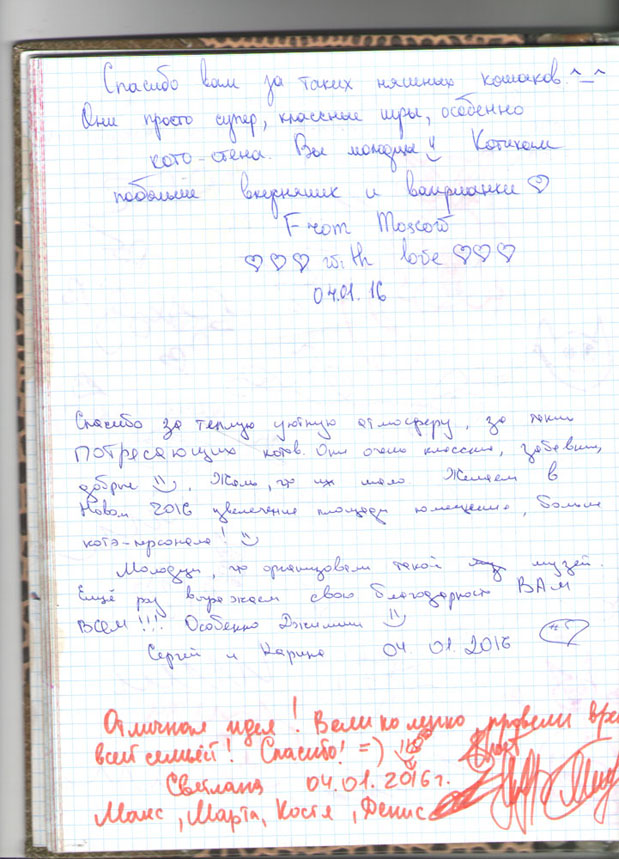 Спасибо вам за таких няшных кошаков ^_^
Они просто супер, классные игры, особенно
кото-стена. Вы молодцы! Котикам
побольше вкусняшек и валирианки ♡
From Moscow
♡♡♡ with love ♡♡♡
04.01.16
Спасибо за теплую уютную атмосферу, за таких
ПОТРЕСАЮЩИХ котов. Они очень классные, забавные,
добрые. Жаль, что их мало Желаем в
Новом 2016 увеличение площади помещение, больше
котэ-персонала!
Молодцы, что организовали такой музей.
Ещё раз выражаем свою благодарность ВАМ
ВСЕМ!!! Особенно Джимми
Сергей и Карина 04.01.2016
Отличная идея! Великолепно провели вре
всей семьёй! Спасибо! =)
Светлана 04.01.2016г.
Макс, Марта, Костя, Денис